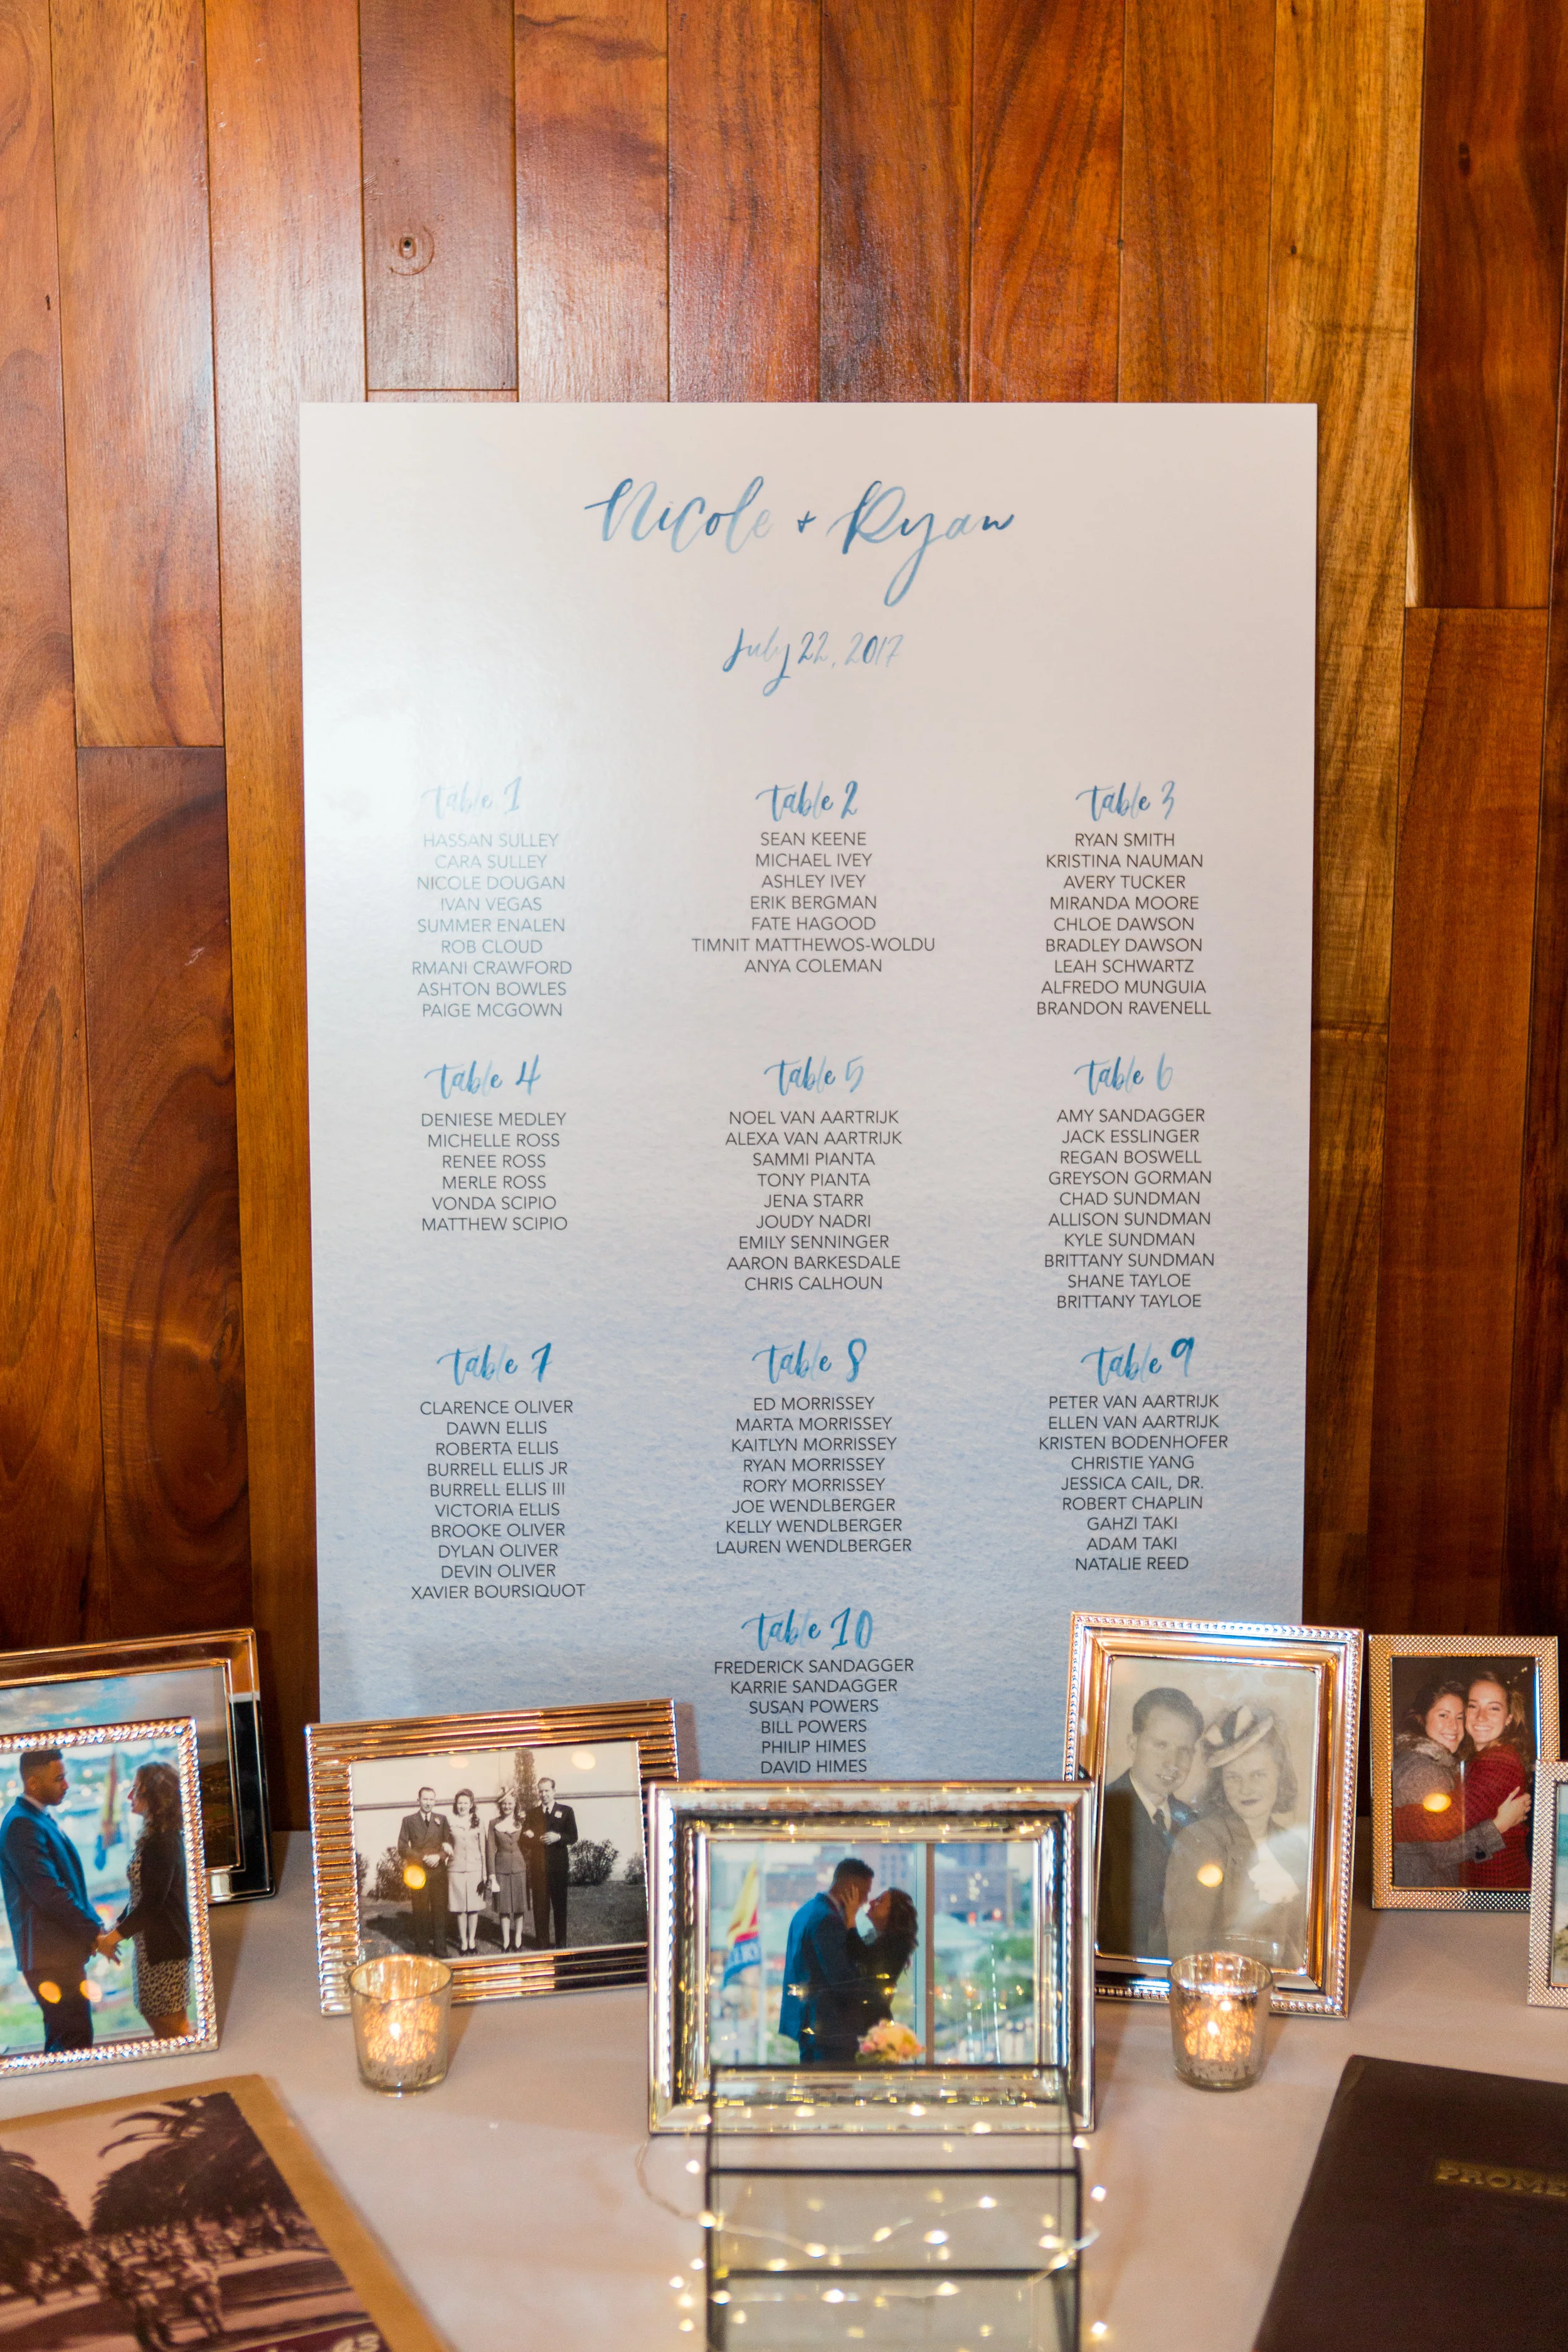 Nicole + Ryan
July 22, 2017
table 1
HASSAN SULLEY
CARA SULLEY
NICOLE DOUGAN
IVAN VEGAS
SUMMER ENALEN
ROB CLOUD
RMANI CRAWFORD
ASHTON BOWLES
PAIGE MCGOWN
table 2
SEAN KEENE
MICHAEL IVEY
ASHLEY IVEY
ERIK BERGMAN
FATE HAGOOD
TIMNIT MATTHEWOS-WOLDU
ANYA COLEMAN
table 3
RYAN SMITH
KRISTINA NAUMAN
AVERY TUCKER
MIRANDA MOORE
CHLOE DAWSON
BRADLEY DAWSON
LEAH SCHWARTZ
ALFREDO MUNGUIA
BRANDON RAVENELL
table 4
DENIESE MEDLEY
MICHELLE ROSS
RENEE ROSS
MERLE ROSS
VONDA SCIPIO
MATTHEW SCIPIO
table 5
NOEL VAN AARTRIJK
ALEXA VAN AARTRIJK
SAMMI PIANTA
TONY PIANTA
JENA STARR
JOUDY NADRI
EMILY SENNINGER
AARON BARKESDALE
CHRIS CALHOUN
table 6
AMY SANDAGGER
JACK ESSLINGER
REGAN BOSWELL
GREYSON GORMAN
CHAD SUNDMAN
ALLISON SUNDMAN
KYLE SUNDMAN
BRITTANY SUNDMAN
SHANE TAYLOE
BRITTANY TAYLOE
table 7
CLARENCE OLIVER
DAWN ELLIS
ROBERTA ELLIS
BURRELL ELLIS JR
BURRELL ELLIS III
VICTORIA ELLIS
BROOKE OLIVER
DYLAN OLIVER
DEVIN OLIVER
XAVIER BOURSIQUOT
table 8
ED MORRISSEY
MARTA MORRISSEY
KAITLYN MORRISSEY
RYAN MORRISSEY
RORY MORRISSEY
JOE WENDLBERGER
KELLY WENDLBERGER
LAUREN WENDLBERGER
table 9
PETER VAN AARTRIJK
ELLEN VAN AARTRIJK
KRISTEN BODENHOFER
CHRISTIE YANG
JESSICA CAIL, DR.
ROBERT CHAPLIN
GAHZI TAKI
ADAM TAKI
NATALIE REED
table 10
FREDERICK SANDAGGER
KARRIE SANDAGGER
SUSAN POWERS
BILL POWERS
PHILIP HIMES
DAVID HIMES
PROME
43